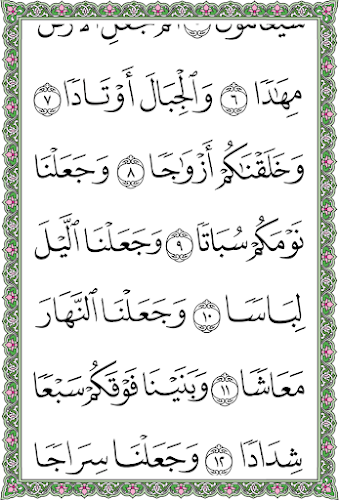 سَيَعْلَمُونَ ۝٥ أَلَمْ نَجْعَلِ ٱلْأَرْضَ
مِهَٰدًا ۝٦ وَٱلْجِبَالَ أَوْتَادًا ۝٧
وَخَلَقْنَٰكُمْ أَزْوَٰجًا ۝٨ وَجَعَلْنَا
نَوْمَكُمْ سُبَاتًا ۝٩ وَجَعَلْنَا ٱلَّيْلَ
لِبَاسًا ۝١٠ وَجَعَلْنَا ٱلنَّهَارَ
مَعَاشًا ۝١١ وَبَنَيْنَا فَوْقَكُمْ سَبْعًا
شِدَادًا ۝١٢ وَجَعَلْنَا سِرَاجًا